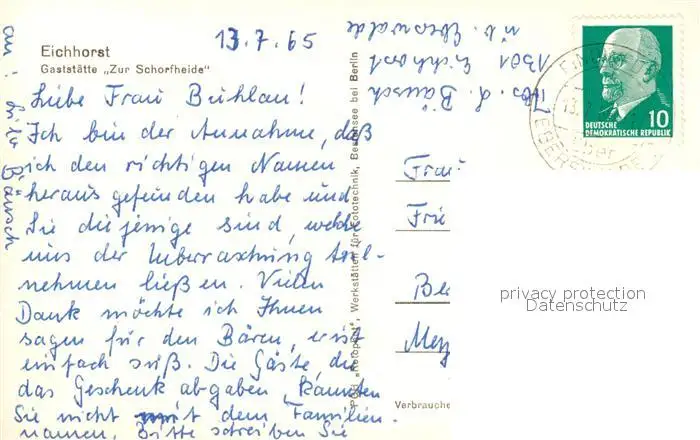 13.7.65
Eichhorst
Gaststätte „Zur Schorfheide"
Liebe Frau Bühlau!
Ich bin der Annahme, daß
ich den richtigen Namen
herausgefunden habe und
Sie diejenige sind, welche
uns der Überraschung teil-
nehmen ließen. Vielen
Dank möchte ich Ihnen
sagen für den Bären, er ist
einfach süß. Die Gäste die
das Geschenk abgaben, kannten
Sie nicht mit dem Familien-
namen. Bitte schreiben Sie
an:
Bäusch
Abs. L. Bäusch
1301 Eichhorst
üb. Eberswalde
Werkstätten für Fototechnik, Bestensee bei Berlin
10
DEUTSCHE
DEMOKRATISCHE REPUBLIK
Frau
Frie
Ber
Verbrauche
privacy protection
Datenschutz